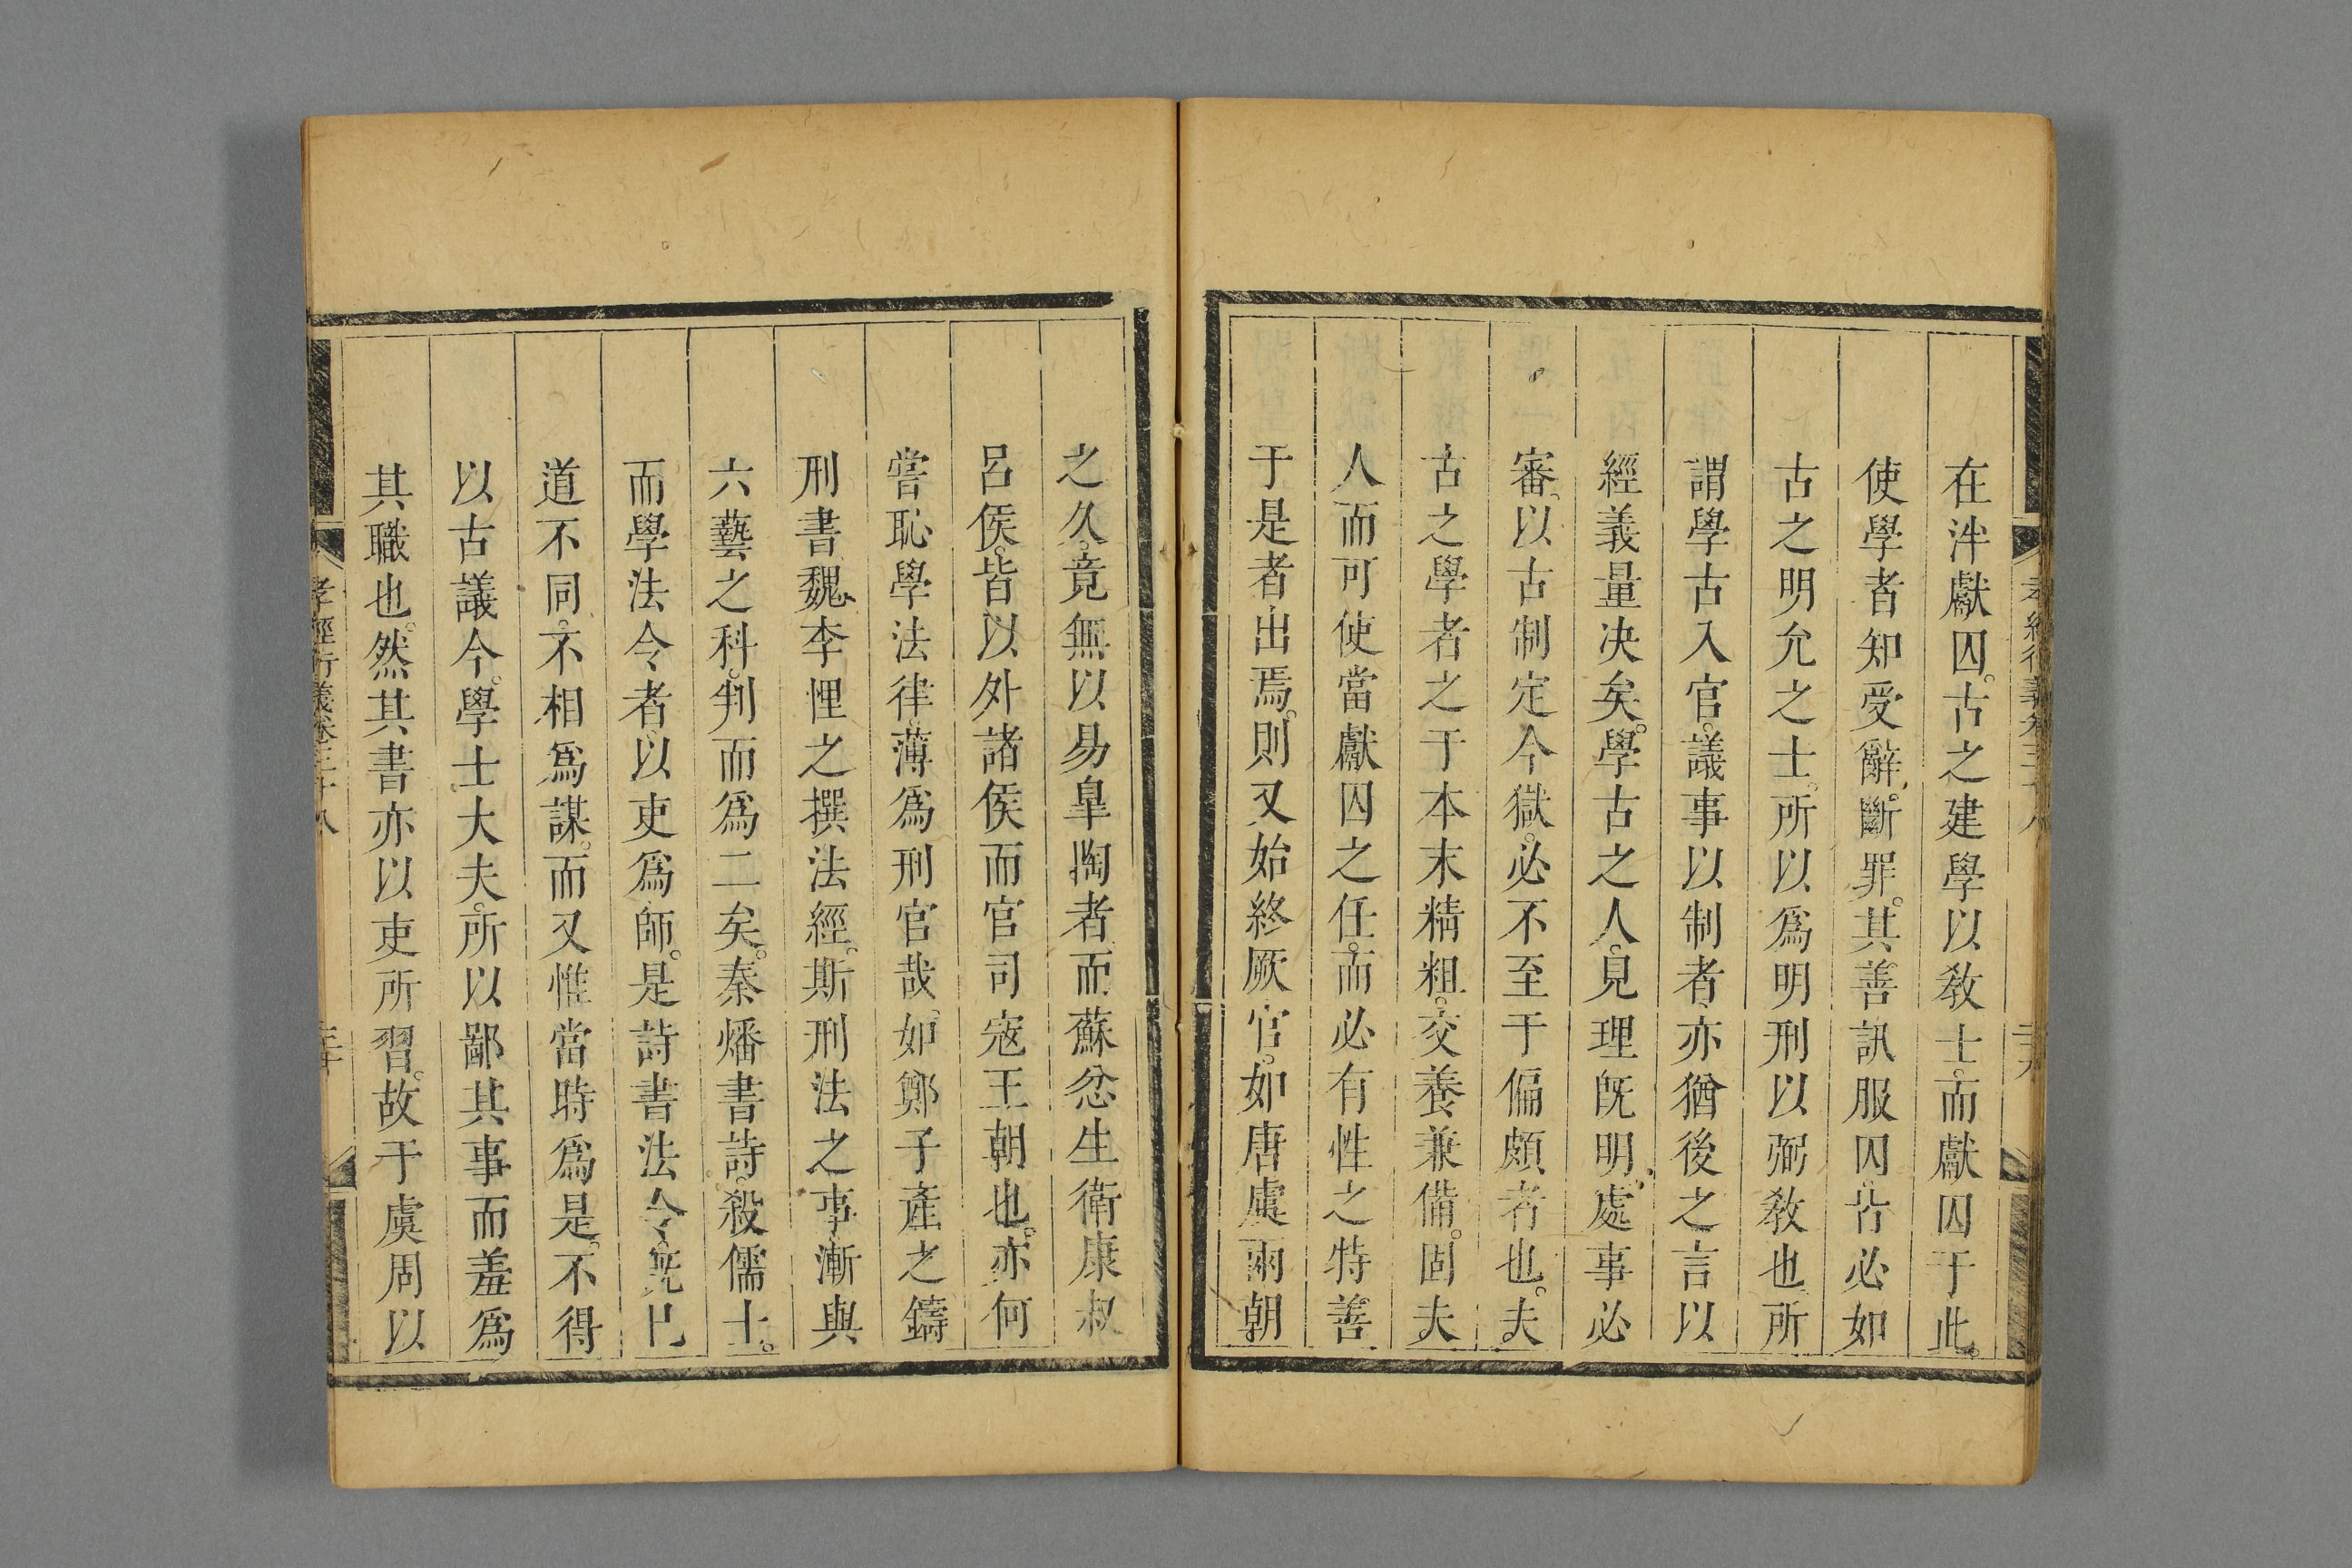 在泮獻囚。古之建學以教士。而獻囚于此。
使學者知受辭。斷罪。其善訊服囚。皆必如
古之明允之士。所以爲明刑以弼教也。所
謂學古入官。議事以制者。亦猶後之言以
經義量决矣。學古之人。見理旣明。處事必
審。以古制定今獄。必不至于偏頗者也。夫
古之學者之于本末精粗。交養兼備。固夫
人而可使當獻囚之任。而必有性之特善
于是者出焉。則又始終厥官。如唐虞兩朝
之久。竟無以易臯陶者。而蘇忿生衛康叔
呂侯。皆以外諸侯而官司寇王朝也。亦何
嘗恥學法律。薄爲刑官哉。如鄭子產之鑄
刑書、魏李悝之撰法經。斯刑法之事漸與
六藝之科。判而爲二矣。秦燔書詩。殺儒士。
而學法令者。以吏爲師。是詩書法令。旣已
道不同。不相爲謀。而又惟當時爲是。不得
以古議今。學士大夫。所以鄙其事而羞爲
其職也。然其書亦以吏所習。故于虞周以
孝經衍義卷三十八
三十